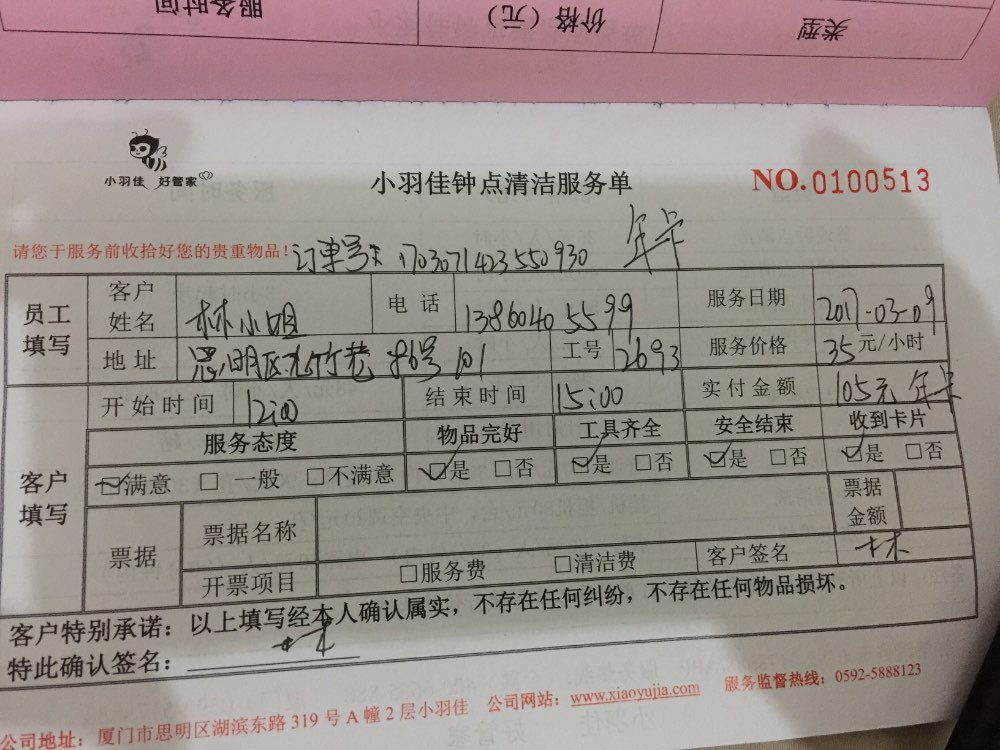 服务时间 价格（元） 类型
小羽佳 好管家
小羽佳钟点清洁服务单
NO.0100513
请您于服务前收拾好您的贵重物品！ 订单号: 1703071423550930 年卡
员工填写 客户姓名 林小姐 电话 13860405599 服务日期 2017-03-09
地址 思明区 巷86号101 工号 2693 服务价格 35元/小时
开始时间 12:00 结束时间 15:00 实付金额 105元 年卡
客户填写 服务态度 物品完好 工具齐全 安全结束 收到卡片
☑满意 □一般 □不满意 ☑是 □否 ☑是 □否 ☑是 □否 ☑是 □否
票据 票据名称 票据金额
开票项目 □服务费 □清洁费 客户签名 林
客户特别承诺：以上填写经本人确认属实，不存在任何纠纷，不存在任何物品损坏。
特此确认签名： 林
公司地址：厦门市思明区湖滨东路319号A幢2层小羽佳 公司网站：www.xiaoyujia.com 服务监督热线：0592-5888123